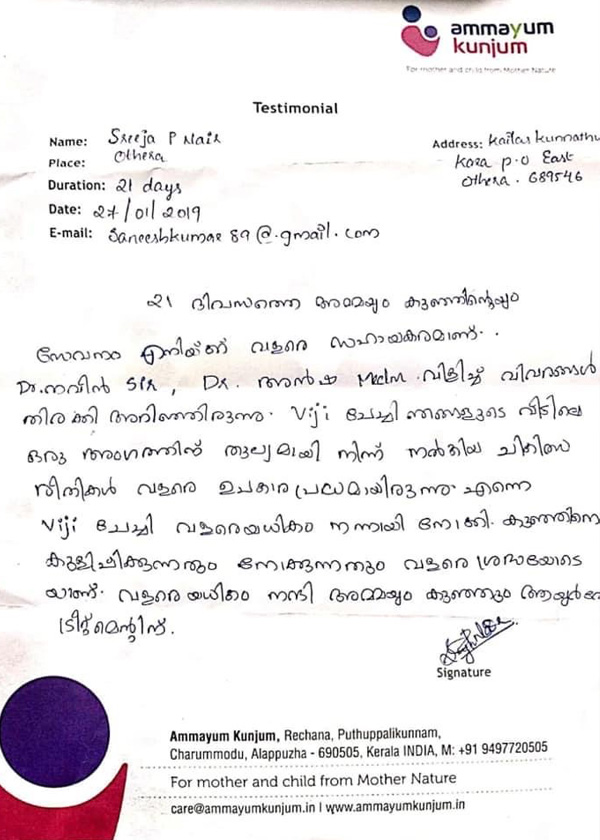 ammayum
kunjum
For mother and child from Mother Nature
Testimonial
Name: Sreeja P Nair
Place: Othera
Duration: 21 days
Date: 27/01/2019
E-mail: Saneeshkumar 89 @.gmail.com
Address: Kailas kunnathu
Kara p.o East
Othera. 689546
21 ദിവസത്തെ അമ്മയും കുഞ്ഞിന്റെയും
സേവനം എനിയ്ക്ക് വളരെ സഹായകരമാണ്.
Dr.നവീൻ Sir, Dr. അൻഷ Mam വിളിച്ച് വിവരങ്ങൾ
തിരക്കി അറിഞ്ഞിരുന്നു. Viji ചേച്ചി ഞങ്ങളുടെ വീട്ടിലെ
ഒരു അംഗത്തിന് തുല്യമായി നിന്ന് നൽകിയ ചികിത്സ
രീതികൾ വളരെ ഉപകാരപ്രദമായിരുന്നു. എന്നെ
Viji ചേച്ചി വളരെയധികം നന്നായി നോക്കി. കുഞ്ഞിനെ
കുളിപ്പിക്കുന്നതും നോക്കുന്നതും വളരെ ശ്രദ്ധയോടെ
യാണ്. വളരെയധികം നന്ദി അമ്മയും കുഞ്ഞും ആയുർവേ
ട്രീറ്റ്മെന്റിന്.
Signature
Ammayum Kunjum, Rechana, Puthuppalikunnam,
Charummodu, Alappuzha - 690505, Kerala INDIA, M: +91 9497720505
For mother and child from Mother Nature
care@ammayumkunjum.in | www.ammayumkunjum.in